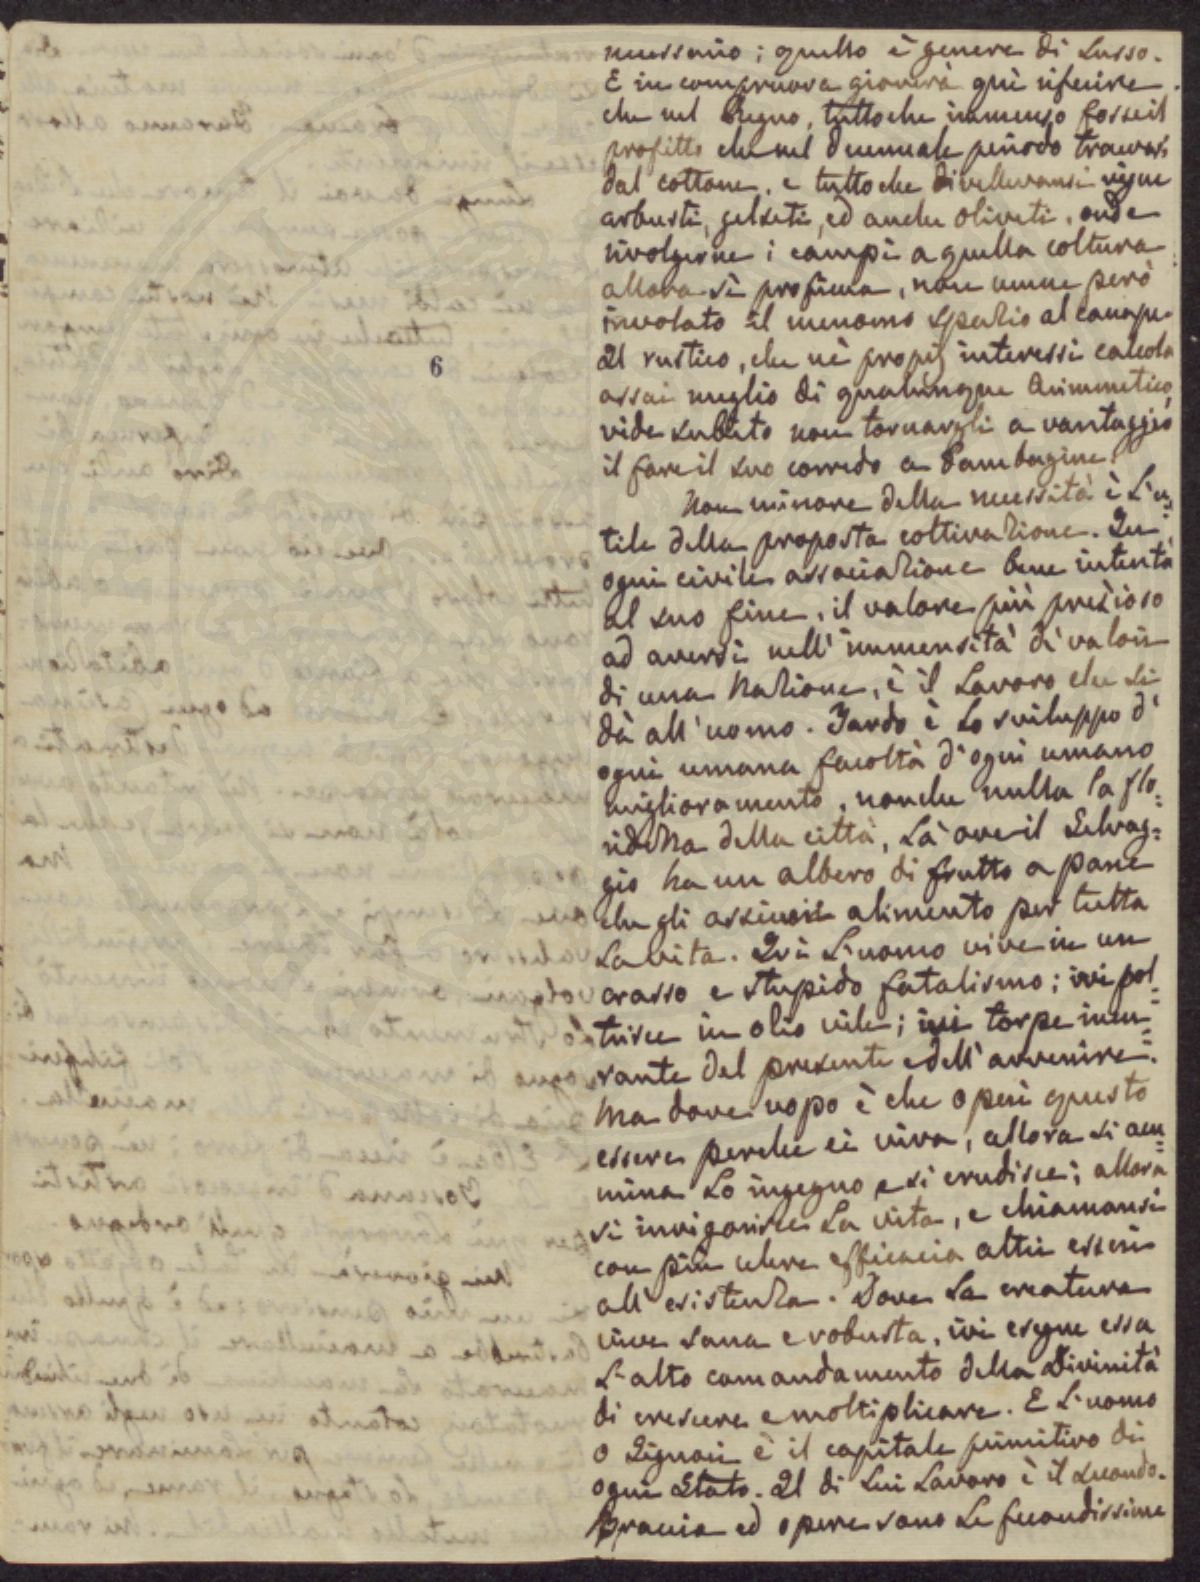 necessario; quello è genere di Lusso.
E in compruova gioverà quì riferire
che nel Regno, tuttoche immenso fosse il
profitto che nel decennale periodo traevasi
dal cottone, e tuttoche divellevansi vigne
arbusti, gelseti, ed anche oliveti, onde
rivolgerne i campi a quella coltura
allora sì proficua, non venne però
involato il menomo spazio al canape.
Il rustico, che nè proprj interessi calcola
assai meglio di qualunque Aritmetico,
vide subbito non tornargli a vantaggio
il fare il suo corredo a Bambagine.
Non minore della necessità è L'u=
tile della proposta coltivazione. In
ogni civile associazione bene intenta
al suo fine, il valore più prezioso
ad aversi nell'immensità di valori
di una Nazione, è il Lavoro che si
dà all'uomo. Tardo è Lo sviluppo d'
ogni umana facoltà d'ogni umano
miglioramento, nonche nulla la flo=
ridezza della città, Là ove il Selvag=
gio ha un albero di frutto a pane
che gli assicuri alimento per tutta
La vita. Ivi L'uomo vive in un
crasso e stupido fatalismo; ivi pol=
trisce in ozio vile; ivi torpe incu=
rante del presente e dell'avvenire.
Ma dove uopo è che operi questo
essere perche ei viva, allora si acu=
mina Lo ingegno e si erudisce; allora
si invigorisce La vita, e chiamansi
con più celere efficacia altri esseri
all'esistenza. Dove La creatura
vive sana e robusta, ivi esegue essa
L'alto comandamento della Divinità
di crescere e moltiplicare. E L'uomo
o Signori è il capitale primitivo di
ogni Stato. Il di Lui Lavoro è il secondo.
Braccia ed opere sono Le fecondissime
6